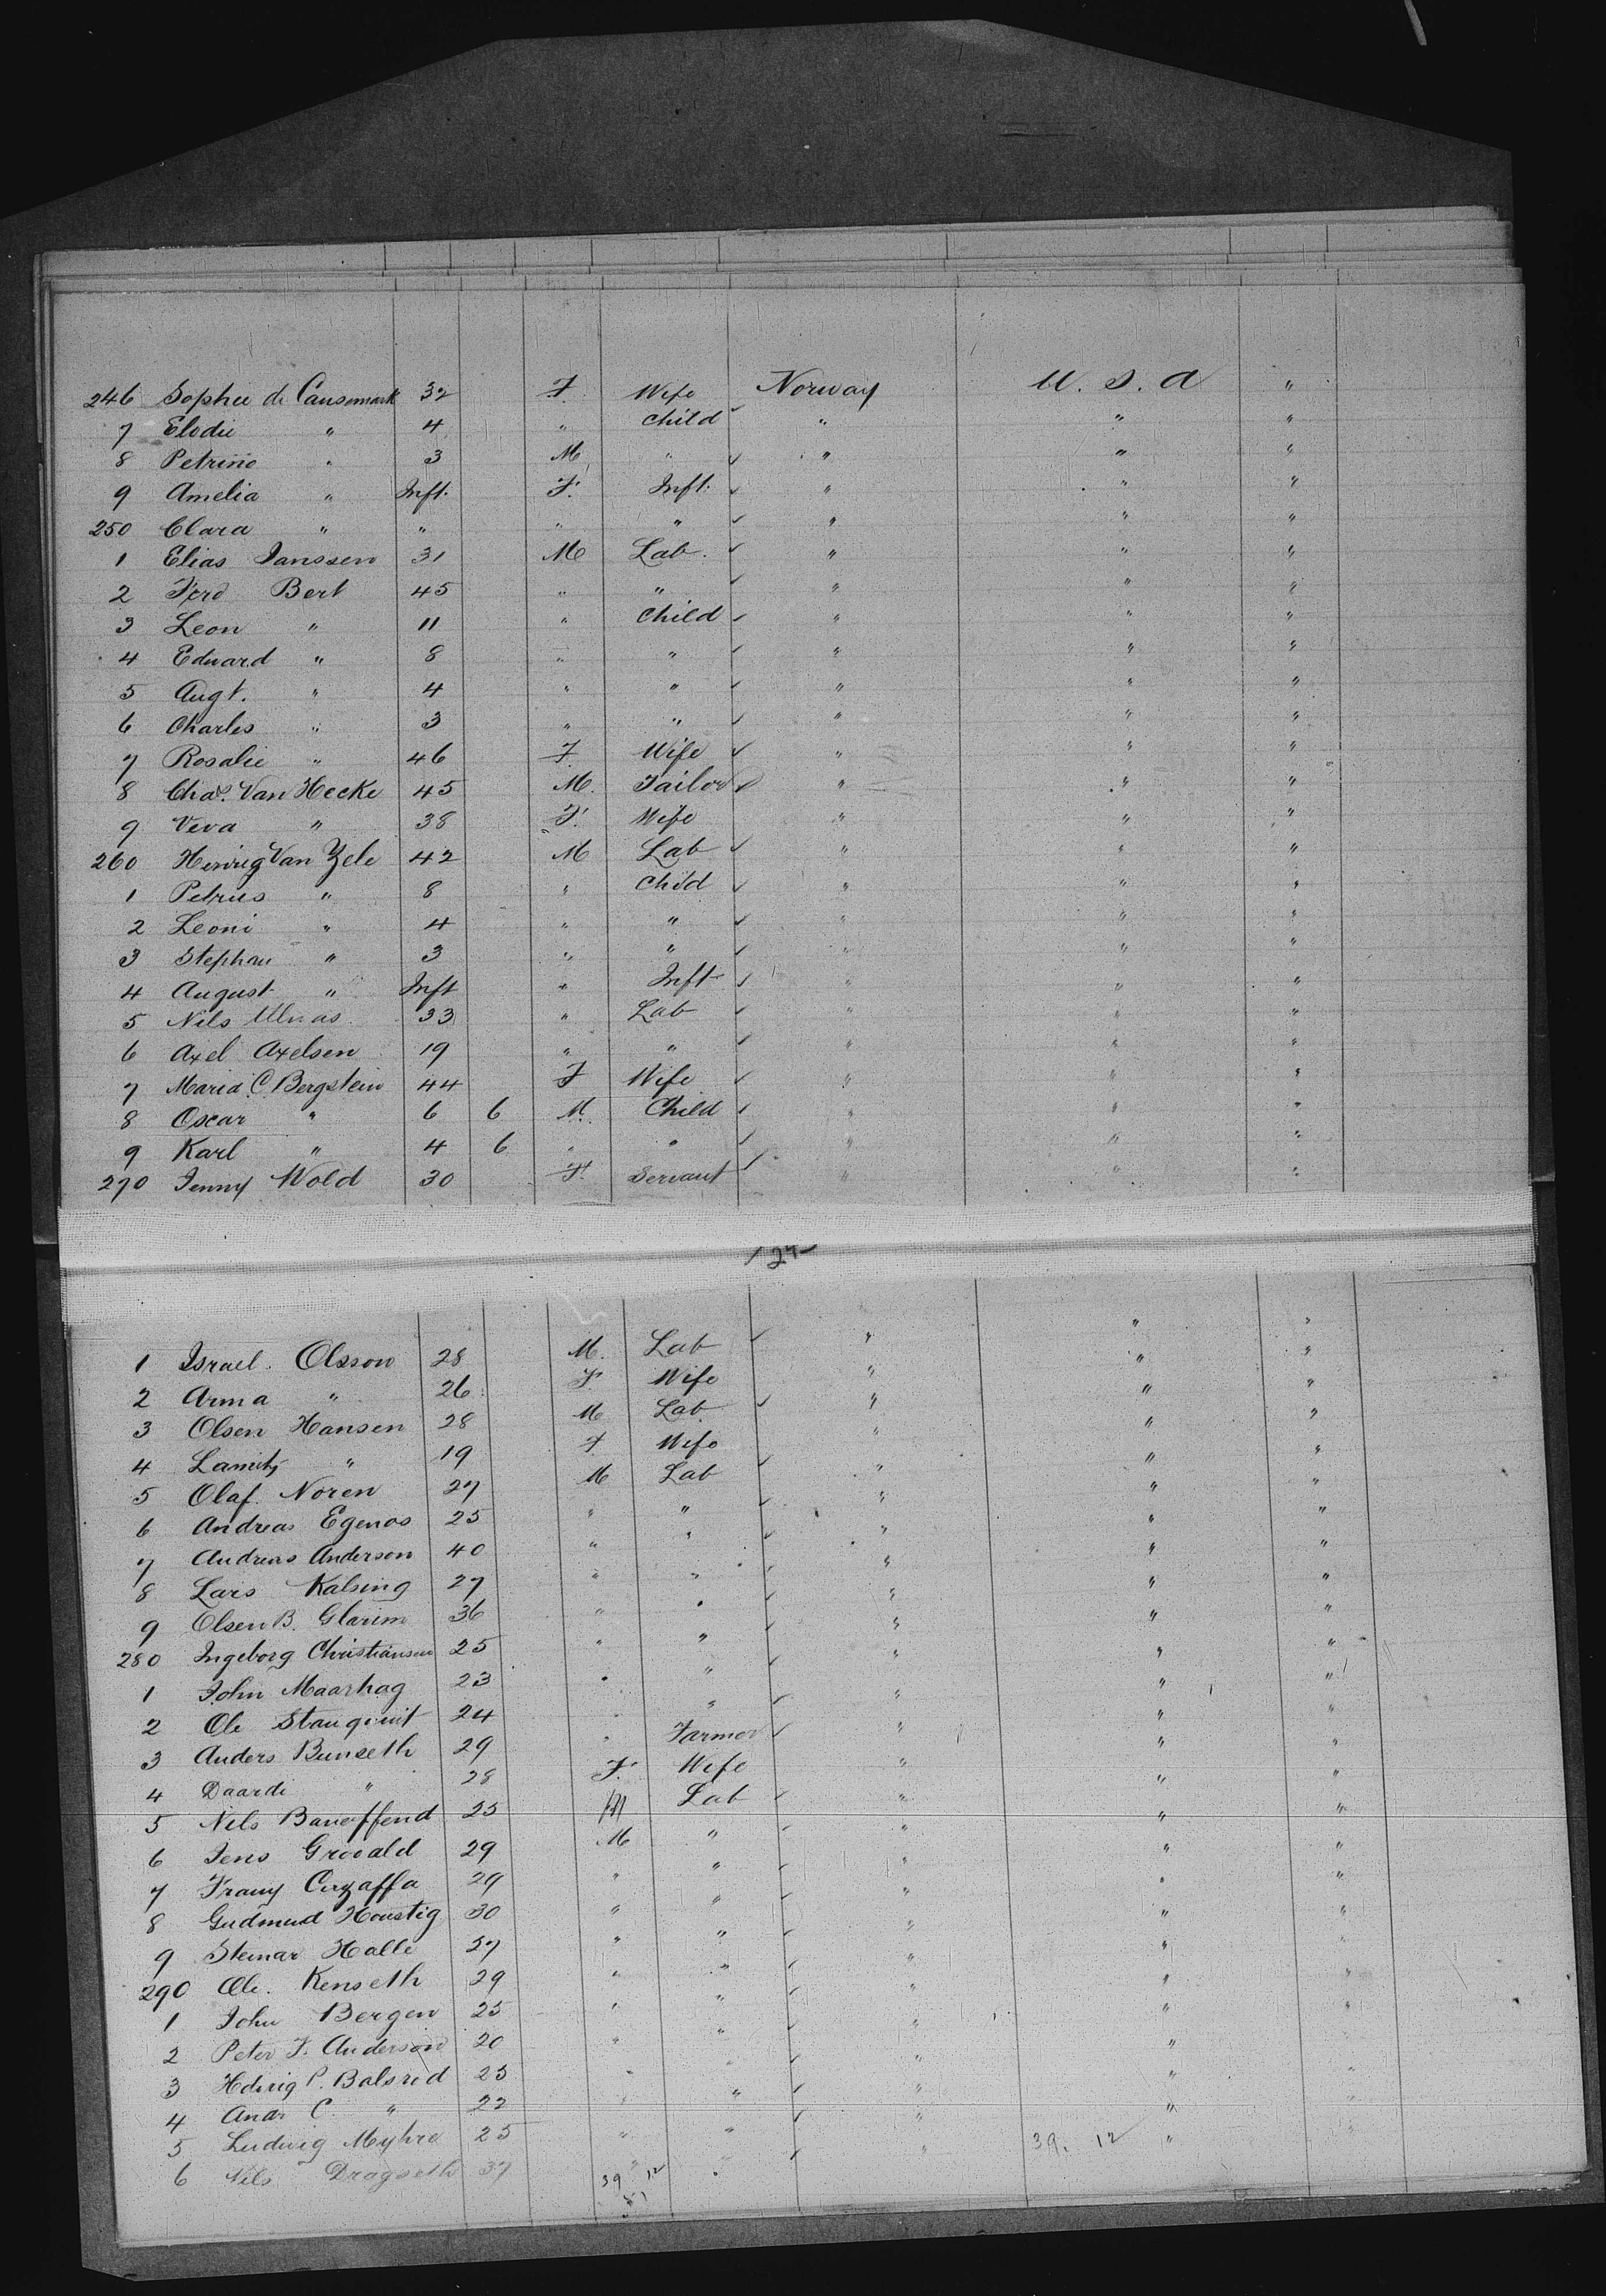 246 Sophie de Causemark 32 F. Wife Norway U. S. A "
7 Elodie " 4 " Child " " "
8 Petrino " 3 M " " " "
9 Amelia " Inft. F. Inft. " " "
250 Clara " " " " " " "
1 Elias Janssen 31 M Lab. " " "
2 Ferd Bert 45 " " " " "
3 Leon " 11 " Child " " "
4 Edward " 8 " " " " "
5 Augt. " 4 " " " " "
6 Charles " 3 " " " " "
7 Rosalie " 46 F Wife " " "
8 Chas. Van Hecke 45 M. Tailor " " "
9 Veva " 38 F. Wife " " "
260 Van Zele 42 M Lab " " "
1 Petrus " 8 " Child " " "
2 Leoni " 4 " " " " "
3 Stephan " 3 " " " " "
4 August " Inft " Inft " " "
5 Nils 33 " Lab " " "
6 Axel Axelsen 19 " " " " "
7 Maria C. Bergstein 44 F Wife " " "
8 Oscar " 6 6 M. Child " " "
9 Karl " 4 6 " " " " "
270 Jenny Wold 30 F. Servant " " "
124
1 Israel Olsson 28 M. Lab " " "
2 Arma " 26 F. Wife " " "
3 Olsen Hansen 28 M Lab " " "
4 " 19 F Wife " " "
5 Olaf Noren 27 M Lab " " "
6 Andreas Egenos 25 " " " " "
7 Andreas Anderson 40 " " " " "
8 Lars Kalsing 27 " " " " "
9 Olsen B. Glarim 36 " " " " "
280 Ingeborg Christiansen 25 " " " " "
1 John Maarhag 23 " " " " "
2 Ole 24 " " " " "
3 Anders Bunseth 29 " Farmer " " "
4 Daardi " 28 F. Wife " " "
5 Nils 25 M Lab " " "
6 Jens Grovald 29 M " " " "
7 29 " " " " "
8 Gudmund Houstig 30 " " " " "
9 Steinar Halle 27 " " " " "
290 Ole. Kenseth 29 " " " " "
1 John Bergen 25 " " " " "
2 Peter F. Anderson 20 " " " " "
3 P. Balsrod 25 " " " " "
4 Andr C. " 22 " " " " "
5 Ludwig Myhre 25 " " " 39. 12 " "
6 Nils Dragseth 37 39 12 "